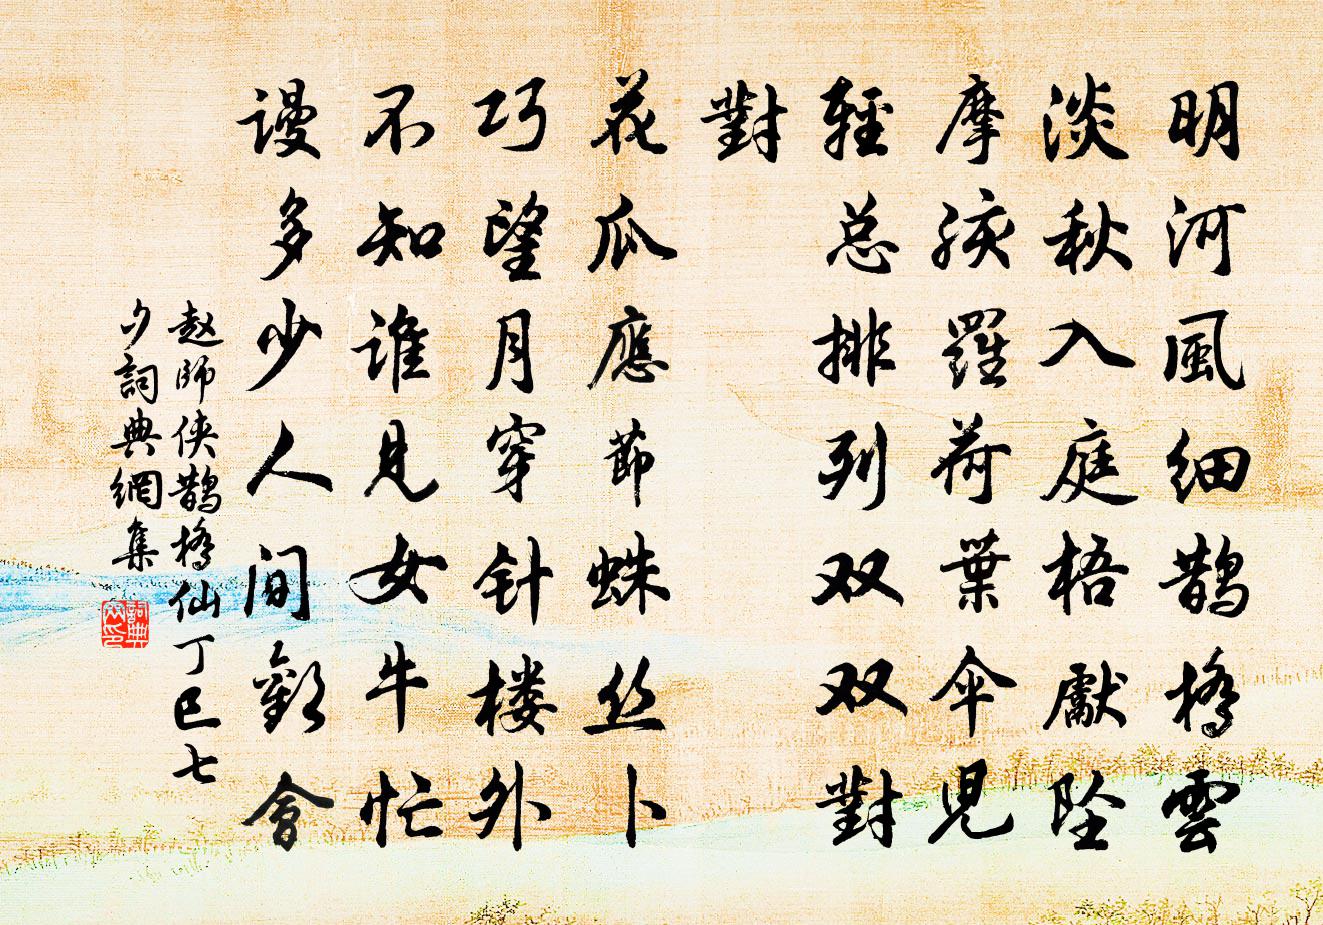 明河風細鵲橋雲
淡秋入庭梧獻坠
摩孩羅荷葉伞兒
輕总排列双双對
對
花瓜應節蛛丝卜
巧望月穿针楼外
不知谁見女牛忙
谩多少人间歡會
赵師侠鵲橋仙丁巳七
夕詞典網集
詞典网印